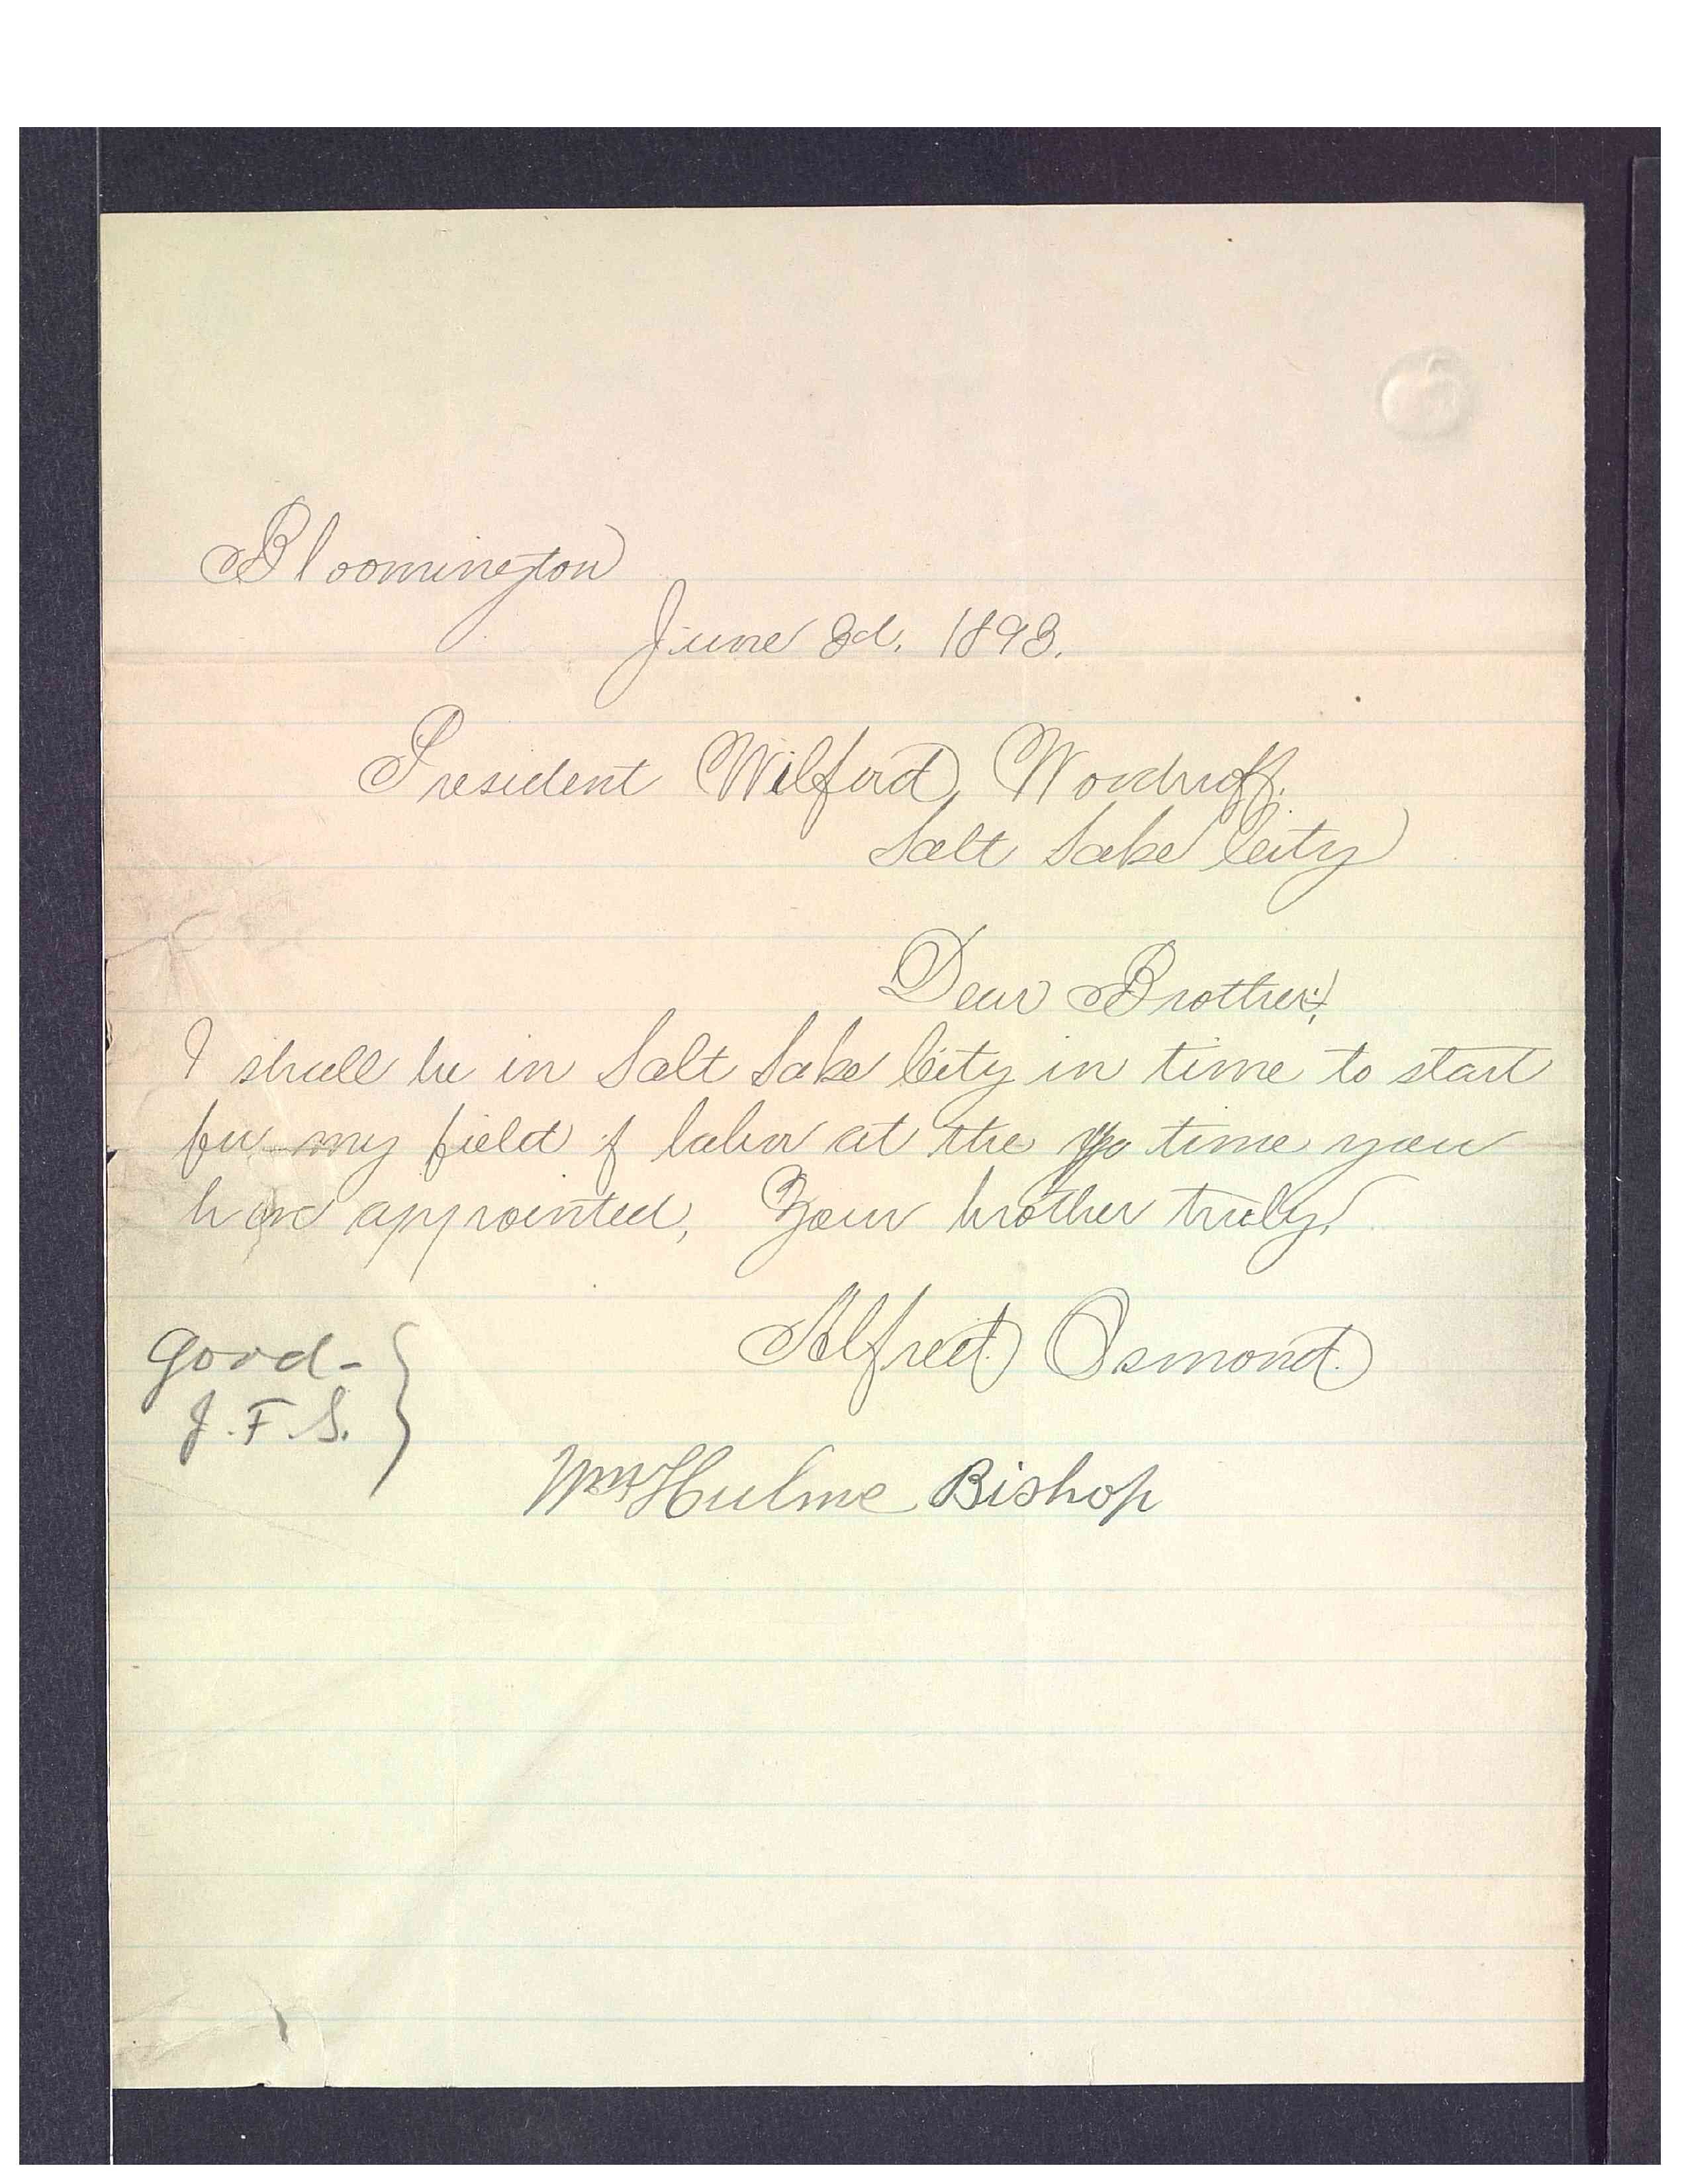 Bloomington
June 3d. 1893.
President Wilford Woodruff.
Salt Lake City
Dear Brother:
I shall be in Salt Lake City in time to start
for my field of labor at the time you
have appointed, Your brother truly,
Alfred Osmond.
Good-
J.F.S.
Wm Hulme Bishop